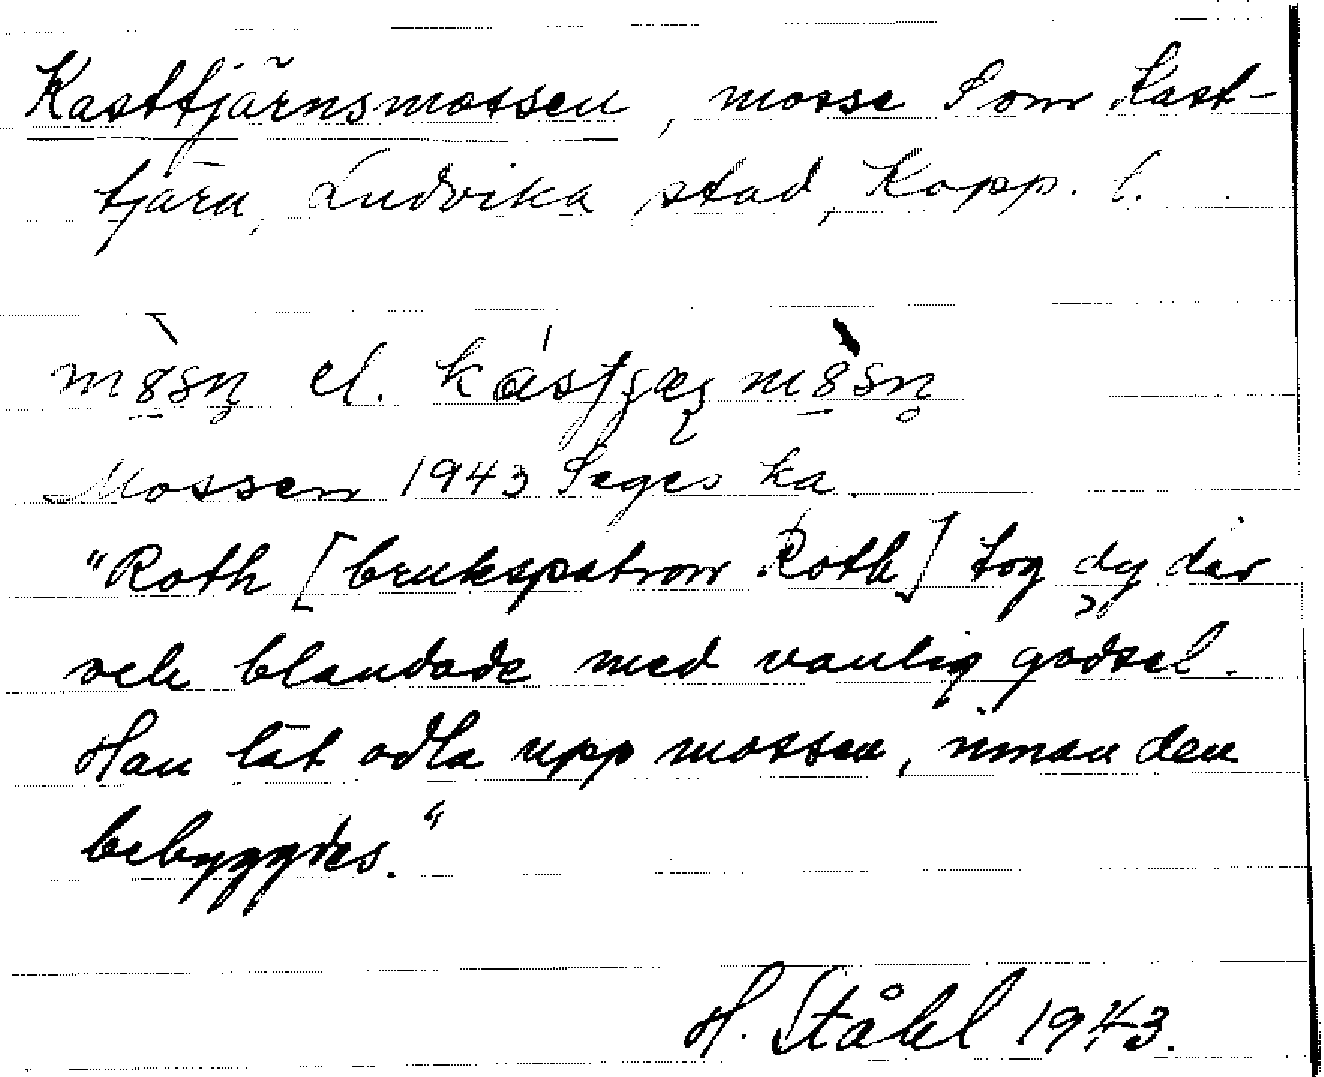 Kasttjärnsmossen, mosse S om Kast-
tjärn, Ludvika stad, Kopp. l.
el.
Mossen 1943 Säges ha
"Roth [brukspatron Roth] tog dy där
och blandade med vanlig gödsel.
Han lät odla upp mossen, innan den
bebyggdes."
H. Ståhl 1943.